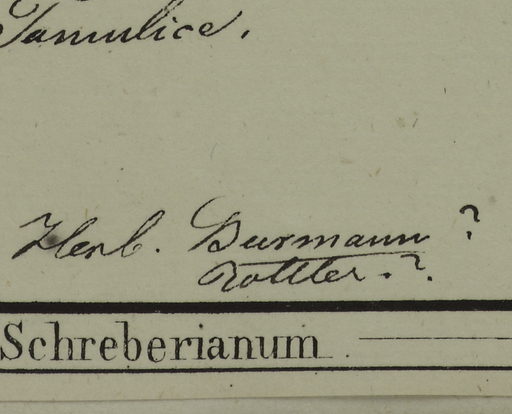 Tamulice.
Herb. Burmann ?
Rottler. ?.
Schreberianum